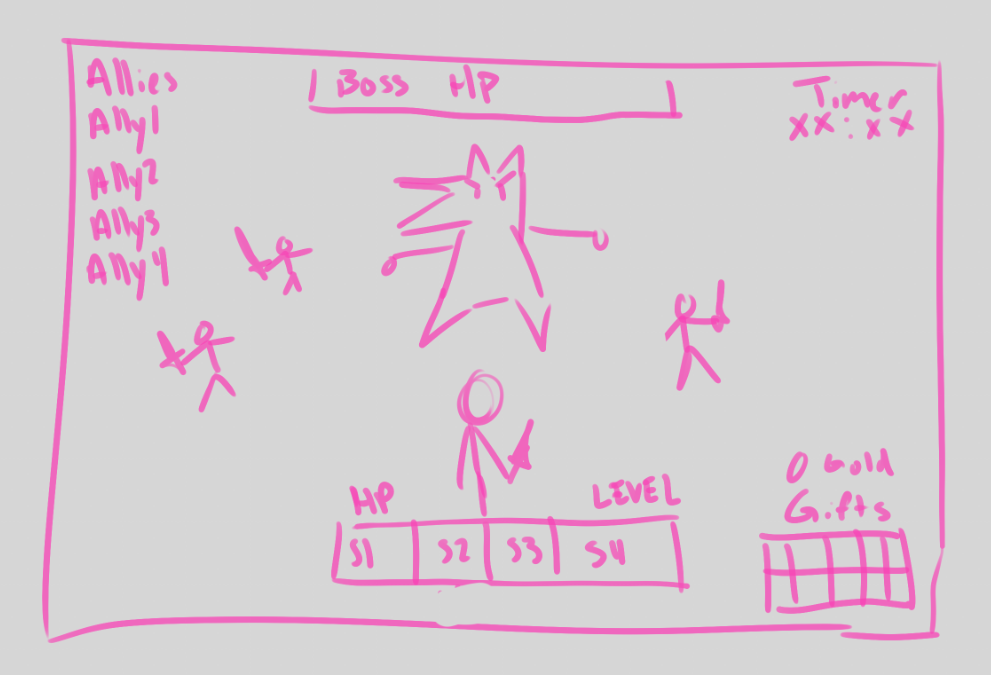 Allies
Ally1
Ally2
Ally3
Ally4
Boss HP
Timer
xx:xx
HP
LEVEL
S1 S2 S3 S4
0 Gold
Gifts